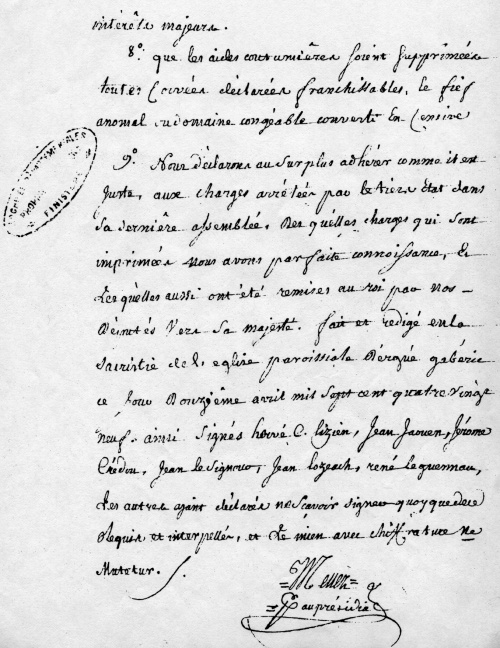 intérêts majeurs.
8º. que les aides coutumières soient supprimées
toutes Corvées déclarées franchissables, le fief
anomal ou domaine congéable converti En Censive
9º. Nous déclarons au surplus adhérer comme il est
juste, aux charges arrêtées par le tiers état dans
sa dernière assemblée, Des quelles charges qui sont
imprimées nous avons parfaite connoissance, Et
Les quelles aussi ont été remises au roi par nos
Députés Vers sa majesté. fait et redigé en la
sacristie de l'eglise paroissiale D'ergué gabéric
ce jour Douzième avril mil Sept cent quatre vingt
neuf. ainsi Signés hervé C. lizien, Jean Jaouen, Jérome
Crédou, Jean le Signour, Jean lozeach, rené le guennau,
Les autres ayant déclarés ne Scavoir signer quoyque de ce
Requis et interpellés, et Le mien avec chiff rature Ne
Mutetur.
FINISTÈRE